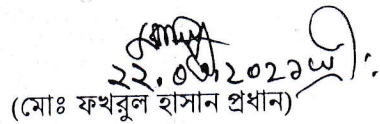 ২২.০৬.২০২১খ্রী:
(মোঃ ফখরুল হাসান প্রধান)